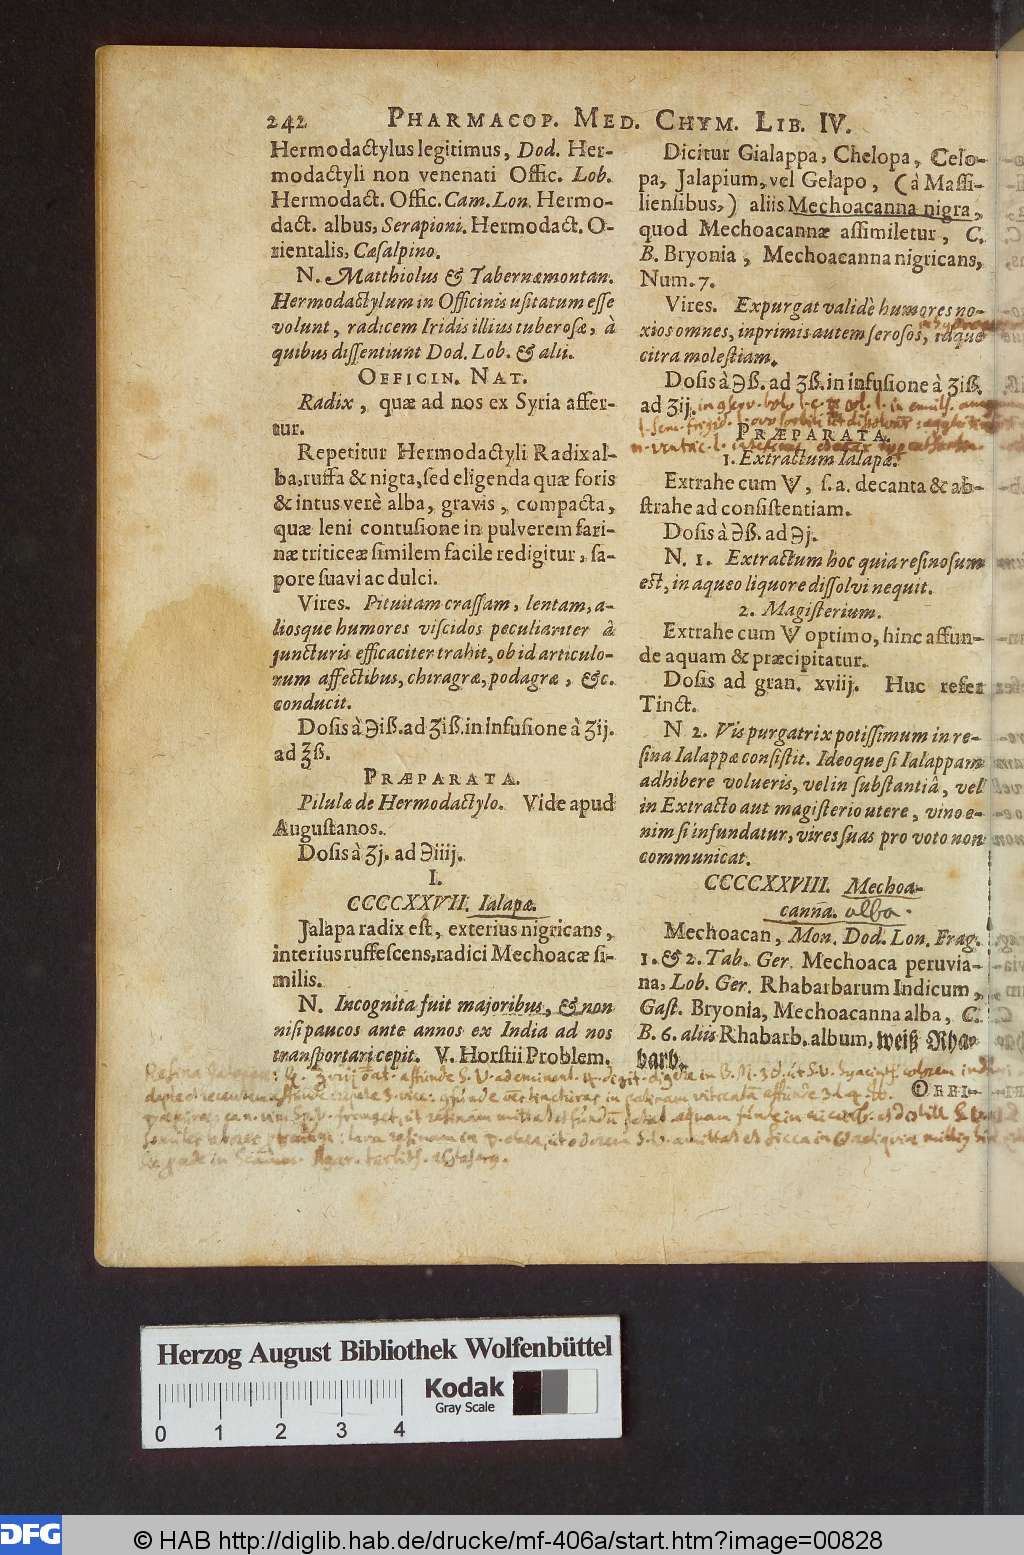 242 PHARMACOP. MED. CHYM. LIB. IV.
Hermodactylus legitimus, Dod. Her-
modactyli non venenati Offic. Lob.
Hermodact. Offic. Cam. Lon. Hermo-
dact. albus, Serapioni. Hermodact. O-
rientalis, Cæsalpino.
N. Matthiolus & Tabernæmontan.
Hermodactylum in Officinis usitatum esse
volunt, radicem Iridis illius tuberosæ, à
quibus dissentiunt Dod. Lob. & alii.
OFFICIN. NAT.
Radix, quæ ad nos ex Syria affer-
tur.
Repetitur Hermodactyli Radix al-
ba, ruffa & nigta, sed eligenda quæ foris
& intus verè alba, gravis, compacta,
quæ leni contusione in pulverem fari-
næ triticeæ similem facile redigitur, sa-
pore suavi ac dulci.
Vires. Pituitam crassam, lentam, a-
liosque humores viscidos peculiariter à
juncturis efficaciter trahit, ob id articulo-
rum affectibus, chiragræ, podagræ, &c.
conducit.
Dosis à ℈iß. ad ʒiß. in infusione à ʒij.
ad ℥ß.
PRÆPARATA.
Pilulæ de Hermodactylo. Vide apud
Augustanos.
Dosis à ʒj. ad ℈iiij.
I.
CCCCXXVII. Ialapæ.
Jalapa radix est, exterius nigricans,
interius ruffescens, radici Mechoacæ si-
milis.
N. Incognita fuit majoribus, & non
nisi paucos ante annos ex India ad nos
transportari cepit. V. Horstii Problem.
Dicitur Gialappa, Chelopa, Celo-
pa, Jalapium, vel Gelapo, (à Massi-
liensibus,) aliis Mechoacanna nigra,
quod Mechoacannæ assimiletur, C.
B. Bryonia, Mechoacanna nigricans,
Num. 7.
Vires. Expurgat validè humores no-
xios omnes, inprimis autem serosos, idque
citra molestiam.
Dosis à ℈ß. ad ʒß. in infusione à ʒiß.
ad ʒij.
PRÆPARATA.
1. Extractum Ialapæ.
Extrahe cum V, s. a. decanta & ab-
strahe ad consistentiam.
Dosis à ℈ß. ad ℈j.
N. 1. Extractum hoc quia resinosum
est, in aqueo liquore dissolvi nequit.
2. Magisterium.
Extrahe cum V optimo, hinc affun-
de aquam & præcipitatur.
Dosis ad gran. xviij. Huc refer
Tinct.
N 2. Vis purgatrix potissimum in re-
sina Ialappæ consistit. Ideoque si Ialappam
adhibere volueris, vel in substantiâ, vel
in Extracto aut magisterio utere, vino e-
nim si infundatur, vires suas pro voto non
communicat.
CCCCXXVIII. Mechoa-
canna. alba.
Mechoacan, Mon. Dod. Lon. Frag.
1. & 2. Tab. Ger. Mechoaca peruvia-
na, Lob. Ger. Rhabarbarum Indicum,
Gast. Bryonia, Mechoacanna alba, C.
B. 6. aliis Rhabarb. album, weiß Rha-
barb.
ORBI-
Herzog August Bibliothek Wolfenbüttel
Kodak
Gray Scale
0 1 2 3 4
DFG © HAB http://diglib.hab.de/drucke/mf-406a/start.htm?image=00828